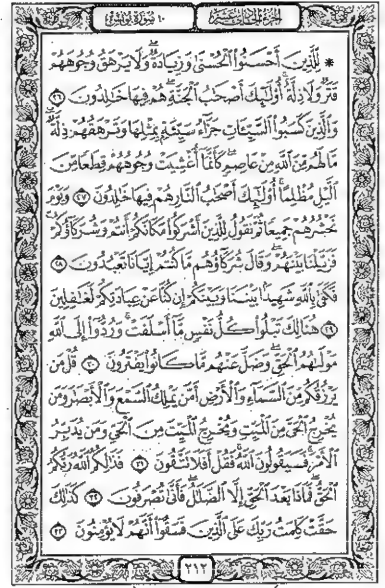 الجزء الحادي عشر
١٠ سورة يونس
۞ لِّلَّذِينَ أَحْسَنُوا۟ ٱلْحُسْنَىٰ وَزِيَادَةٌ ۖ وَلَا يَرْهَقُ وُجُوهَهُمْ
قَتَرٌ وَلَا ذِلَّةٌ ۚ أُو۟لَٰٓئِكَ أَصْحَٰبُ ٱلْجَنَّةِ ۖ هُمْ فِيهَا خَٰلِدُونَ ٢٦
وَٱلَّذِينَ كَسَبُوا۟ ٱلسَّيِّـَٔاتِ جَزَآءُ سَيِّئَةٍۭ بِمِثْلِهَا وَتَرْهَقُهُمْ ذِلَّةٌ ۖ
مَّا لَهُم مِّنَ ٱللَّهِ مِنْ عَاصِمٍ ۖ كَأَنَّمَآ أُغْشِيَتْ وُجُوهُهُمْ قِطَعًا مِّنَ
ٱلَّيْلِ مُظْلِمًا ۚ أُو۟لَٰٓئِكَ أَصْحَٰبُ ٱلنَّارِ ۖ هُمْ فِيهَا خَٰلِدُونَ ٢٧ وَيَوْمَ
نَحْشُرُهُمْ جَمِيعًا ثُمَّ نَقُولُ لِلَّذِينَ أَشْرَكُوا۟ مَكَانَكُمْ أَنتُمْ وَشُرَكَآؤُكُمْ ۚ
فَزَيَّلْنَا بَيْنَهُمْ ۖ وَقَالَ شُرَكَآؤُهُم مَّا كُنتُمْ إِيَّانَا تَعْبُدُونَ ٢٨
فَكَفَىٰ بِٱللَّهِ شَهِيدًۢا بَيْنَنَا وَبَيْنَكُمْ إِن كُنَّا عَنْ عِبَادَتِكُمْ لَغَٰفِلِينَ
٢٩ هُنَالِكَ تَبْلُوا۟ كُلُّ نَفْسٍ مَّآ أَسْلَفَتْ ۚ وَرُدُّوٓا۟ إِلَى ٱللَّهِ
مَوْلَىٰهُمُ ٱلْحَقِّ ۖ وَضَلَّ عَنْهُم مَّا كَانُوا۟ يَفْتَرُونَ ٣٠ قُلْ مَن
يَرْزُقُكُم مِّنَ ٱلسَّمَآءِ وَٱلْأَرْضِ أَمَّن يَمْلِكُ ٱلسَّمْعَ وَٱلْأَبْصَٰرَ وَمَن
يُخْرِجُ ٱلْحَىَّ مِنَ ٱلْمَيِّتِ وَيُخْرِجُ ٱلْمَيِّتَ مِنَ ٱلْحَىِّ وَمَن يُدَبِّرُ
ٱلْأَمْرَ ۚ فَسَيَقُولُونَ ٱللَّهُ ۚ فَقُلْ أَفَلَا تَتَّقُونَ ٣١ فَذَٰلِكُمُ ٱللَّهُ رَبُّكُمُ
ٱلْحَقُّ ۖ فَمَاذَا بَعْدَ ٱلْحَقِّ إِلَّا ٱلضَّلَٰلُ ۖ فَأَنَّىٰ تُصْرَفُونَ ٣٢ كَذَٰلِكَ
حَقَّتْ كَلِمَتُ رَبِّكَ عَلَى ٱلَّذِينَ فَسَقُوٓا۟ أَنَّهُمْ لَا يُؤْمِنُونَ ٣٣
٢١٢